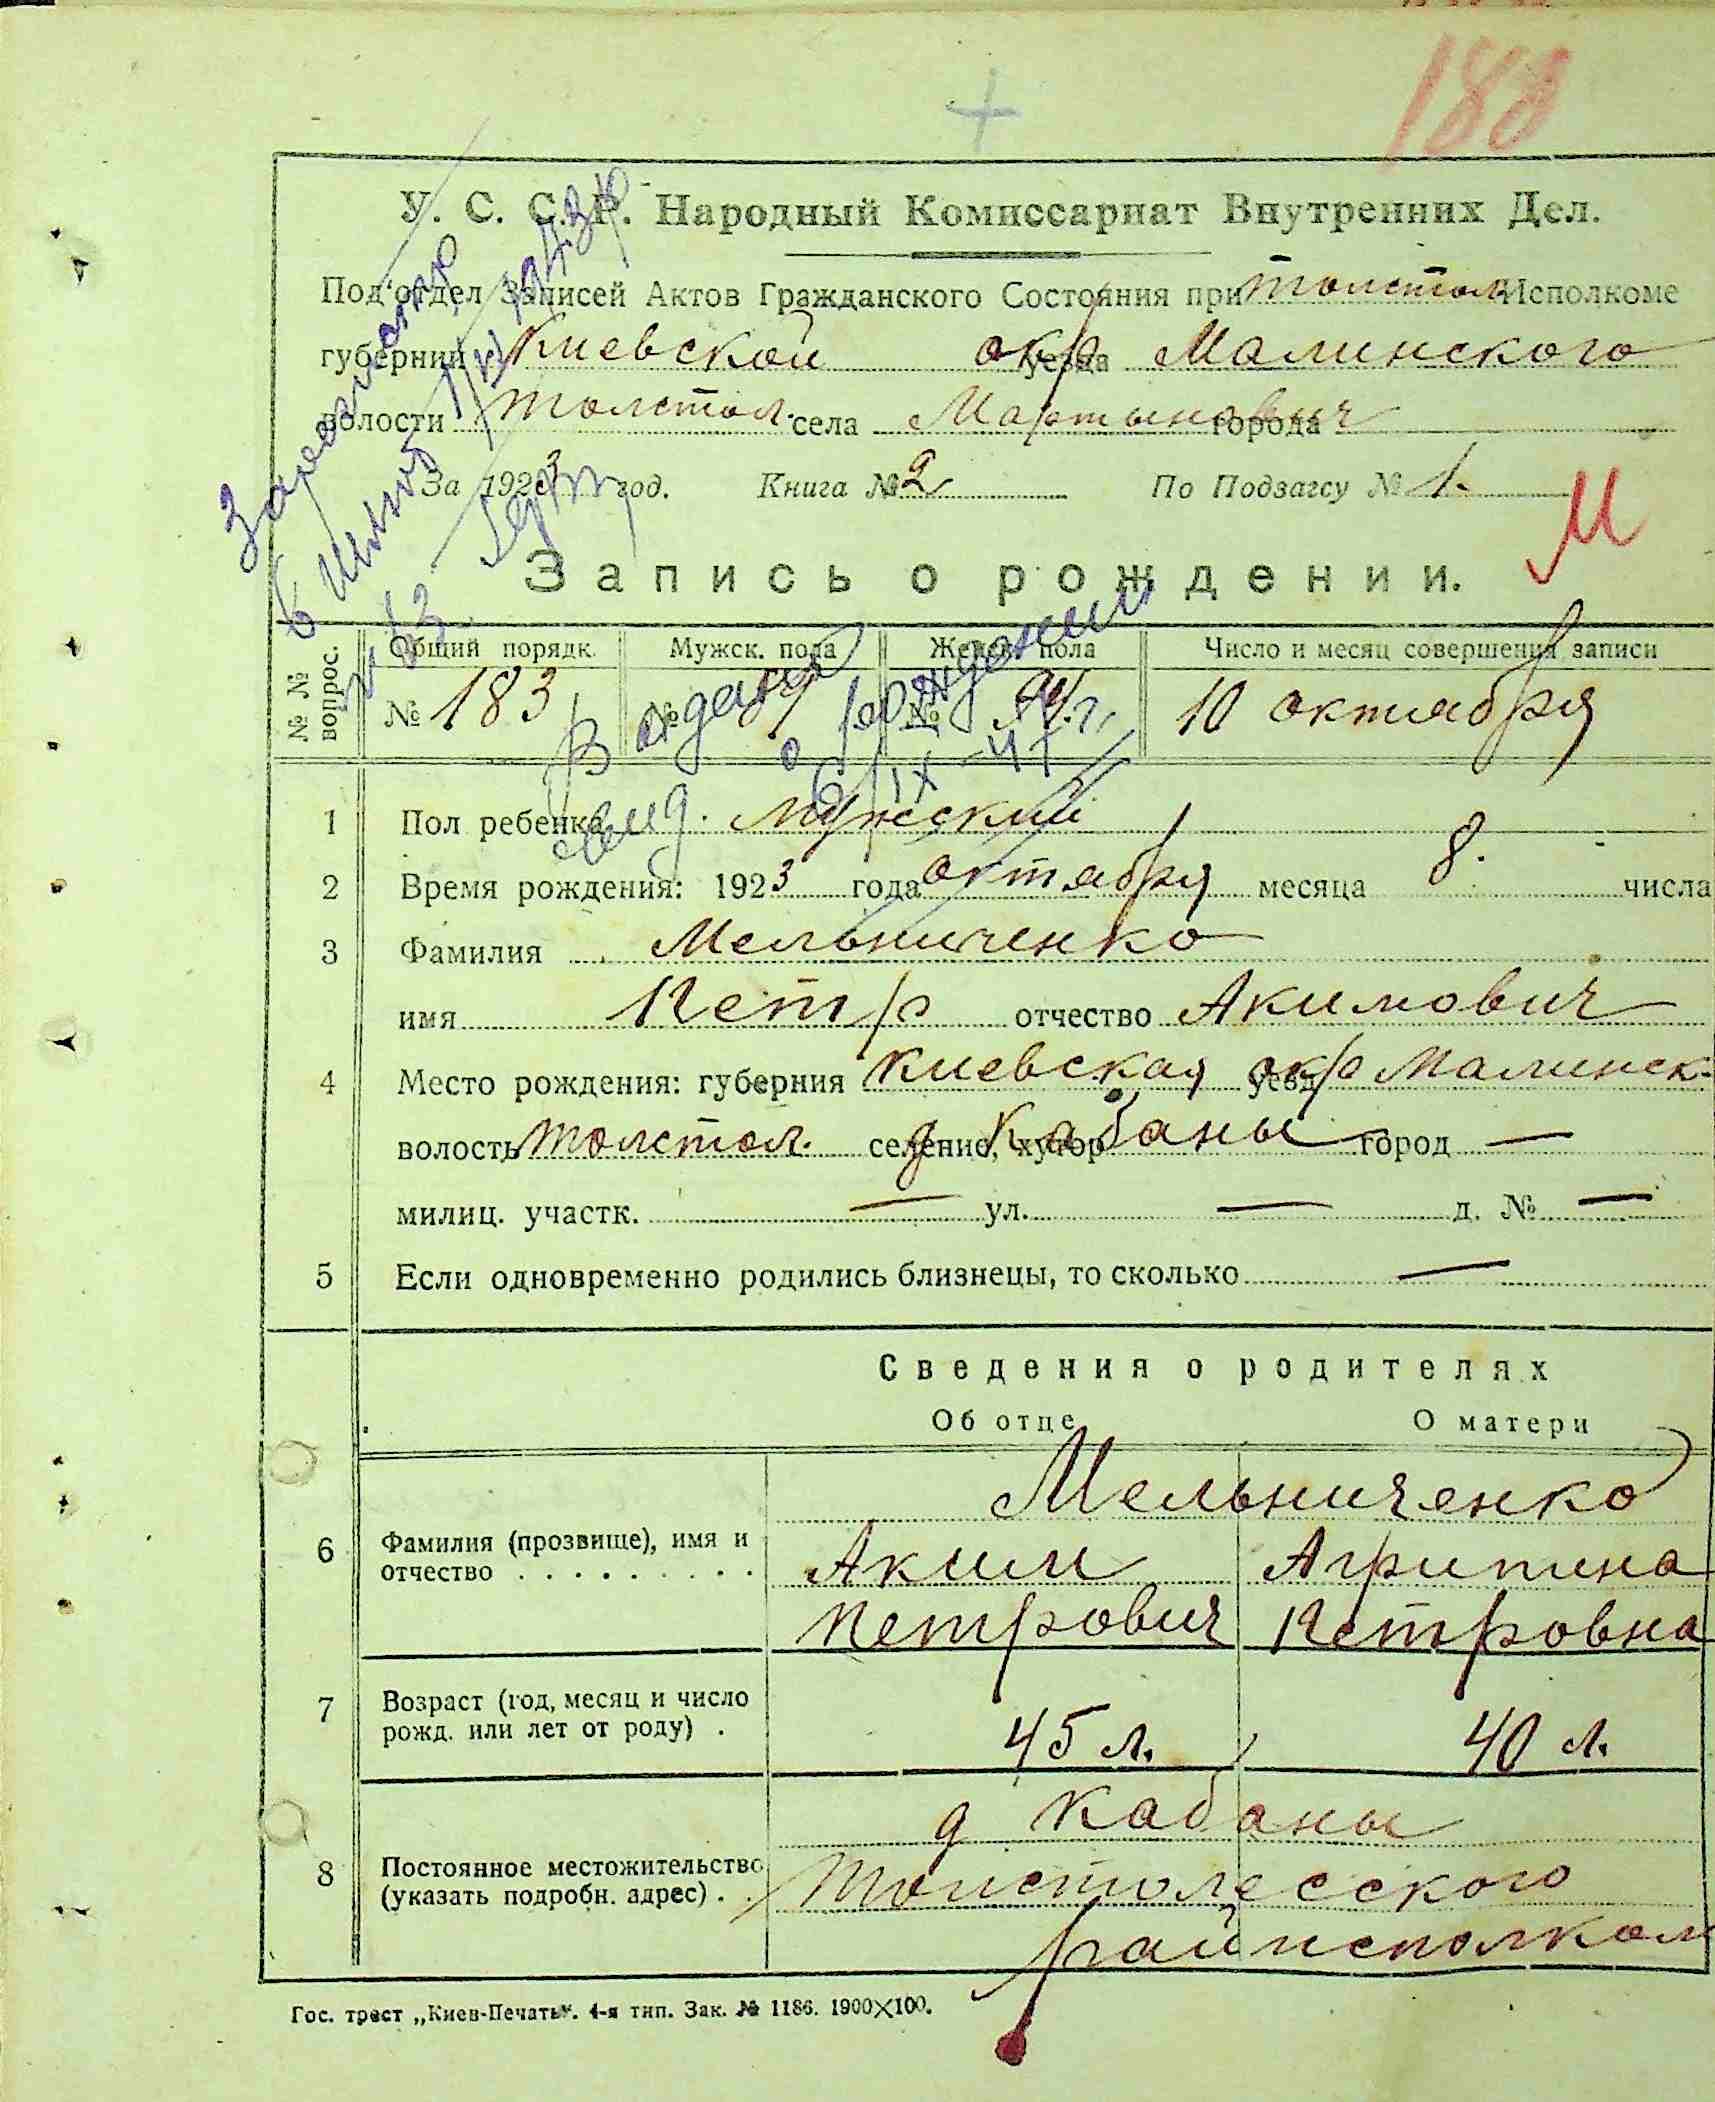 188
У. С. С. Р. Народный Комиссариат Внутренних Дел.
Под'отдел Записей Актов Гражданского Состояния при Толстол. Исполкоме
губернии Киевской окр уезда Малинского
волости Толстол. села Мартынович города
За 1923 год. Книга № 2 По Подзагсу № 1.
М
Запись о рождении.
№ № вопрос.
Общий порядк. Мужск. пола Женск. пола Число и месяц совершения записи
№ 183 № № 10 октября
Выдано
свид. о рождении
6/IX-47 г.
1 Пол ребенка Мужский
2 Время рождения: 1923 года октября месяца 8. числа
3 Фамилия Мельниченко
имя Петр отчество Акимович
4 Место рождения: губерния Киевская уезд окр Малинск.
волость Толстол. селение, хутор д Кабаны город —
милиц. участк. — ул. — д. № —
5 Если одновременно родились близнецы, то сколько —
Сведения о родителях
Об отце О матери
Мельниченко
6 Фамилия (прозвище), имя и отчество . . . . . . . . . Аким Агрипина
Петрович Петровна
7 Возраст (год, месяц и число рожд. или лет от роду) . 45 л. 40 л.
д Кабаны
8 Постоянное местожительство (указать подробн. адрес) . . Толстолесского
райисполком
Гос. трест „Киев-Печать". 4-я тип. Зак. № 1186. 1900×100.